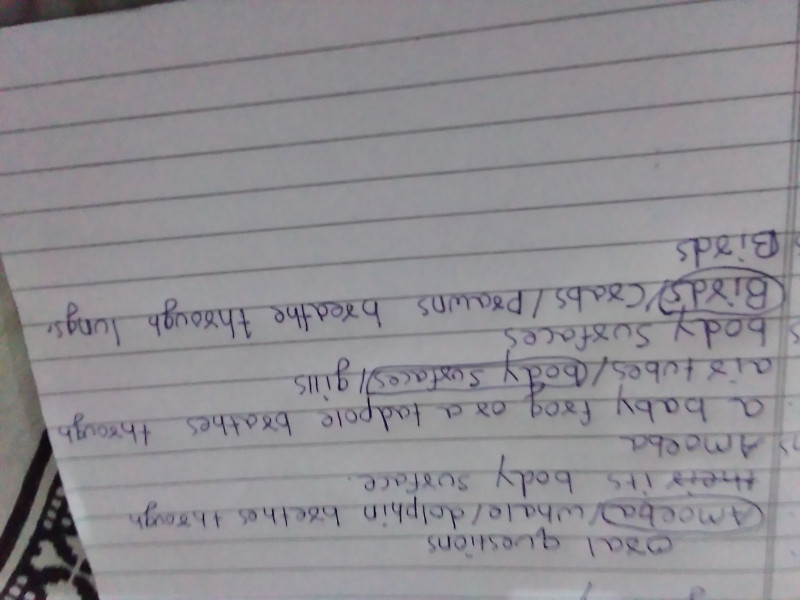 oral questions
Amoeba/whale/dolphin brethes through
their its body surface.
Amoeba
a baby frog or a tadpole brathes through
air tubes/body surfaces/gills
body surfaces
Birds/Crabs/Prawns breathe through lungs.
Birds